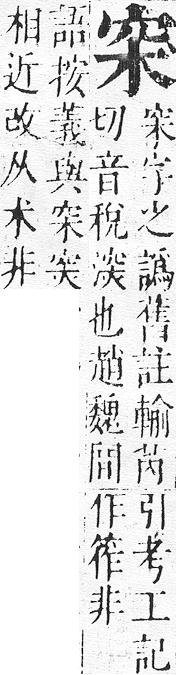 穼字之譌舊註輸芮引考工記
切音稅深也趙魏間作筰非
語按義與穼突
相近改从朮非